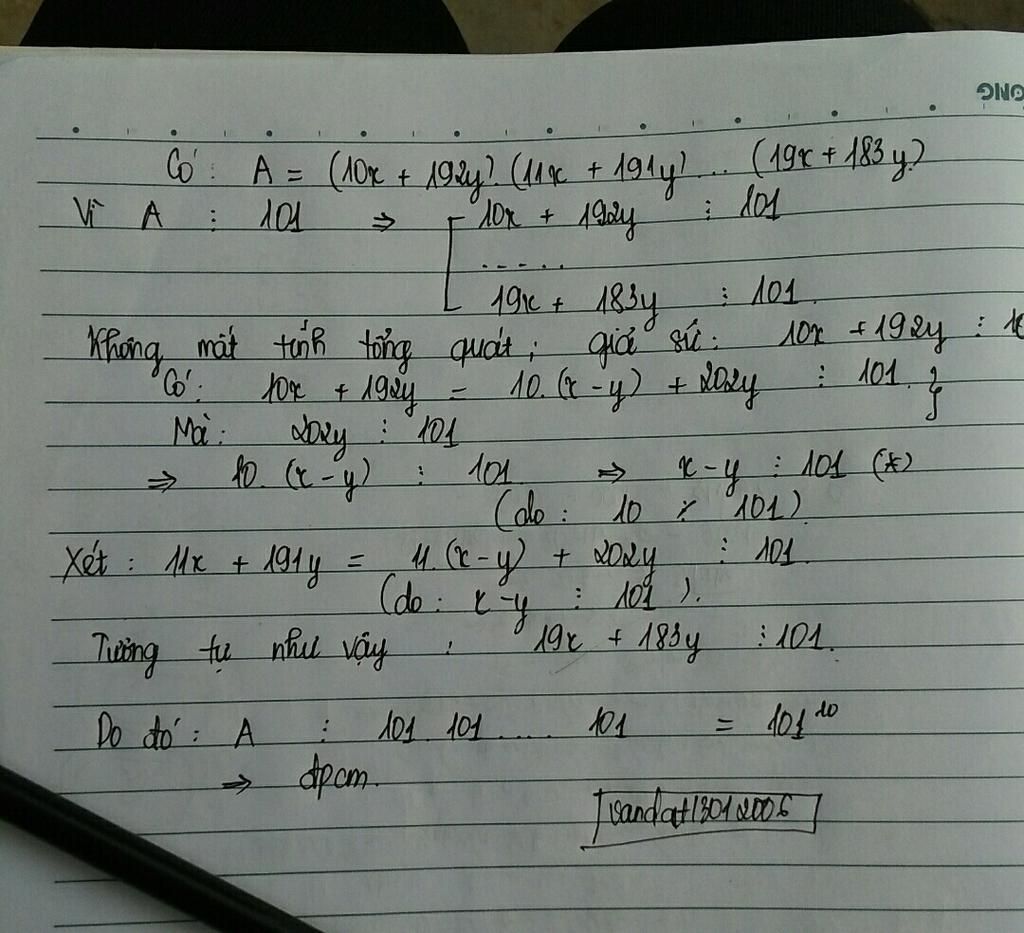 ONG
Có: A = (10x + 192y).(11x + 191y)... (19x + 183y)
Vì A ⋮ 101 ⇒ [ 10x + 192y ⋮ 101
.....
19x + 183y ⋮ 101.
Không mất tính tổng quát; giả sử: 10x + 192y ⋮ 1
Có: 10x + 192y = 10.(x-y) + 202y ⋮ 101. }
Mà: 202y ⋮ 101
⇒ 10.(x-y) ⋮ 101 ⇒ x-y ⋮ 101 (*)
(do: 10 ⋮̸ 101)
Xét: 11x + 191y = 11.(x-y) + 202y ⋮ 101.
(do: x-y ⋮ 101).
Tương tự như vậy: 19x + 183y ⋮ 101.
Do đó: A ⋮ 101.101.... 101 = 101¹⁰
⇒ đpcm.
vandat13012006